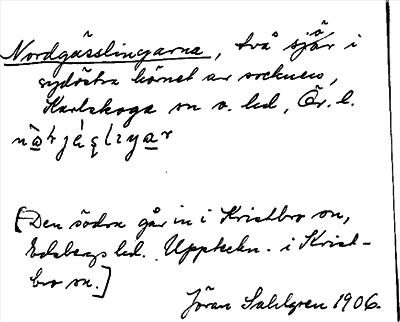 Nordgässlingarna, två sjöar i
sydöstra hörnet av socknen,
Karlskoga sn o. hd, Ör. l.
[Den södra går in i Kristbro sn,
Edsbergs hd. Uppteckn. i Krist-
bro sn.]
Jöran Sahlgren 1906.